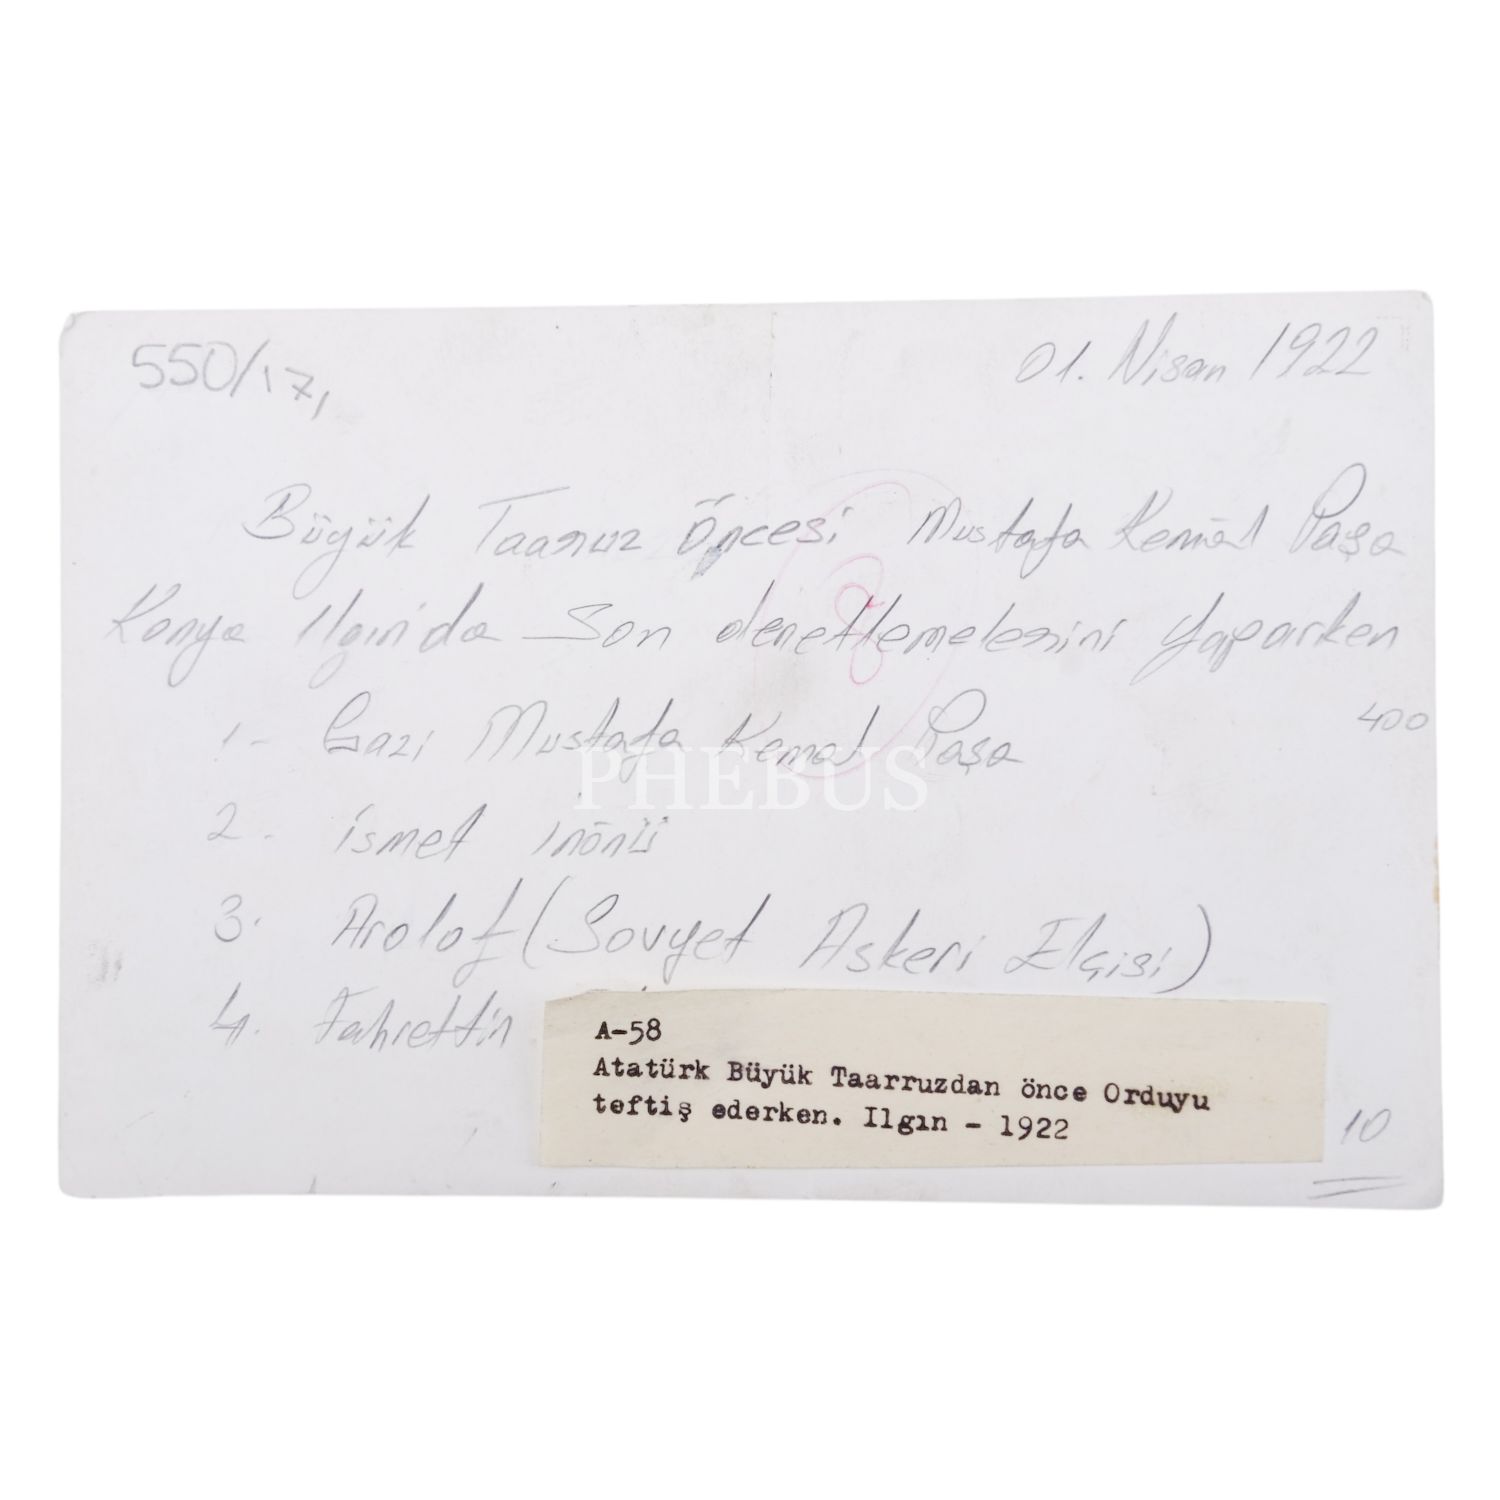 550/17,
01. Nisan 1922
Büyük Taarruz Öncesi Mustafa Kemâl Paşa
Konya Ilgın'da Son denetlemelerini yaparken
8
400
1- Gazi Mustafa Kemal Paşa
PHEBUS
2. İsmet İnönü
3. Arolof (Sovyet Askeri Elçisi)
4. Fahrettin
A-58
Atatürk Büyük Taarruzdan önce Orduyu
teftiş ederken. Ilgın - 1922
10